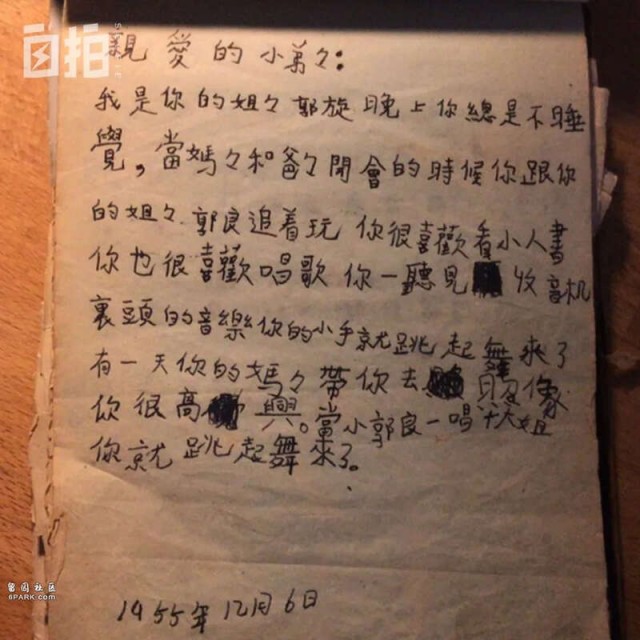 自拍
親愛的小弟々:
我是你的姐々郭旋晚上你總是不睡
覺,當媽々和爸々開會的時候你跟你
的姐々郭良追着玩 你很喜歡看小人書
你也很喜歡唱歌 你一聽見 收音机
裏頭的音樂你的小手就跳起舞來了
有一天你的媽々帶你去 照像
你很高 興。當小郭良一唱 姐
你就跳起舞來了。
1955年12月6日
留园社区
6PARK.COM